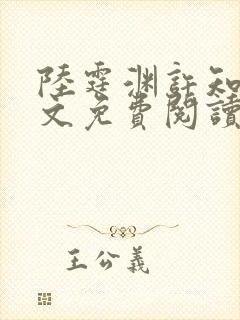 陸霆渊許知
文免費閱讀
王公義